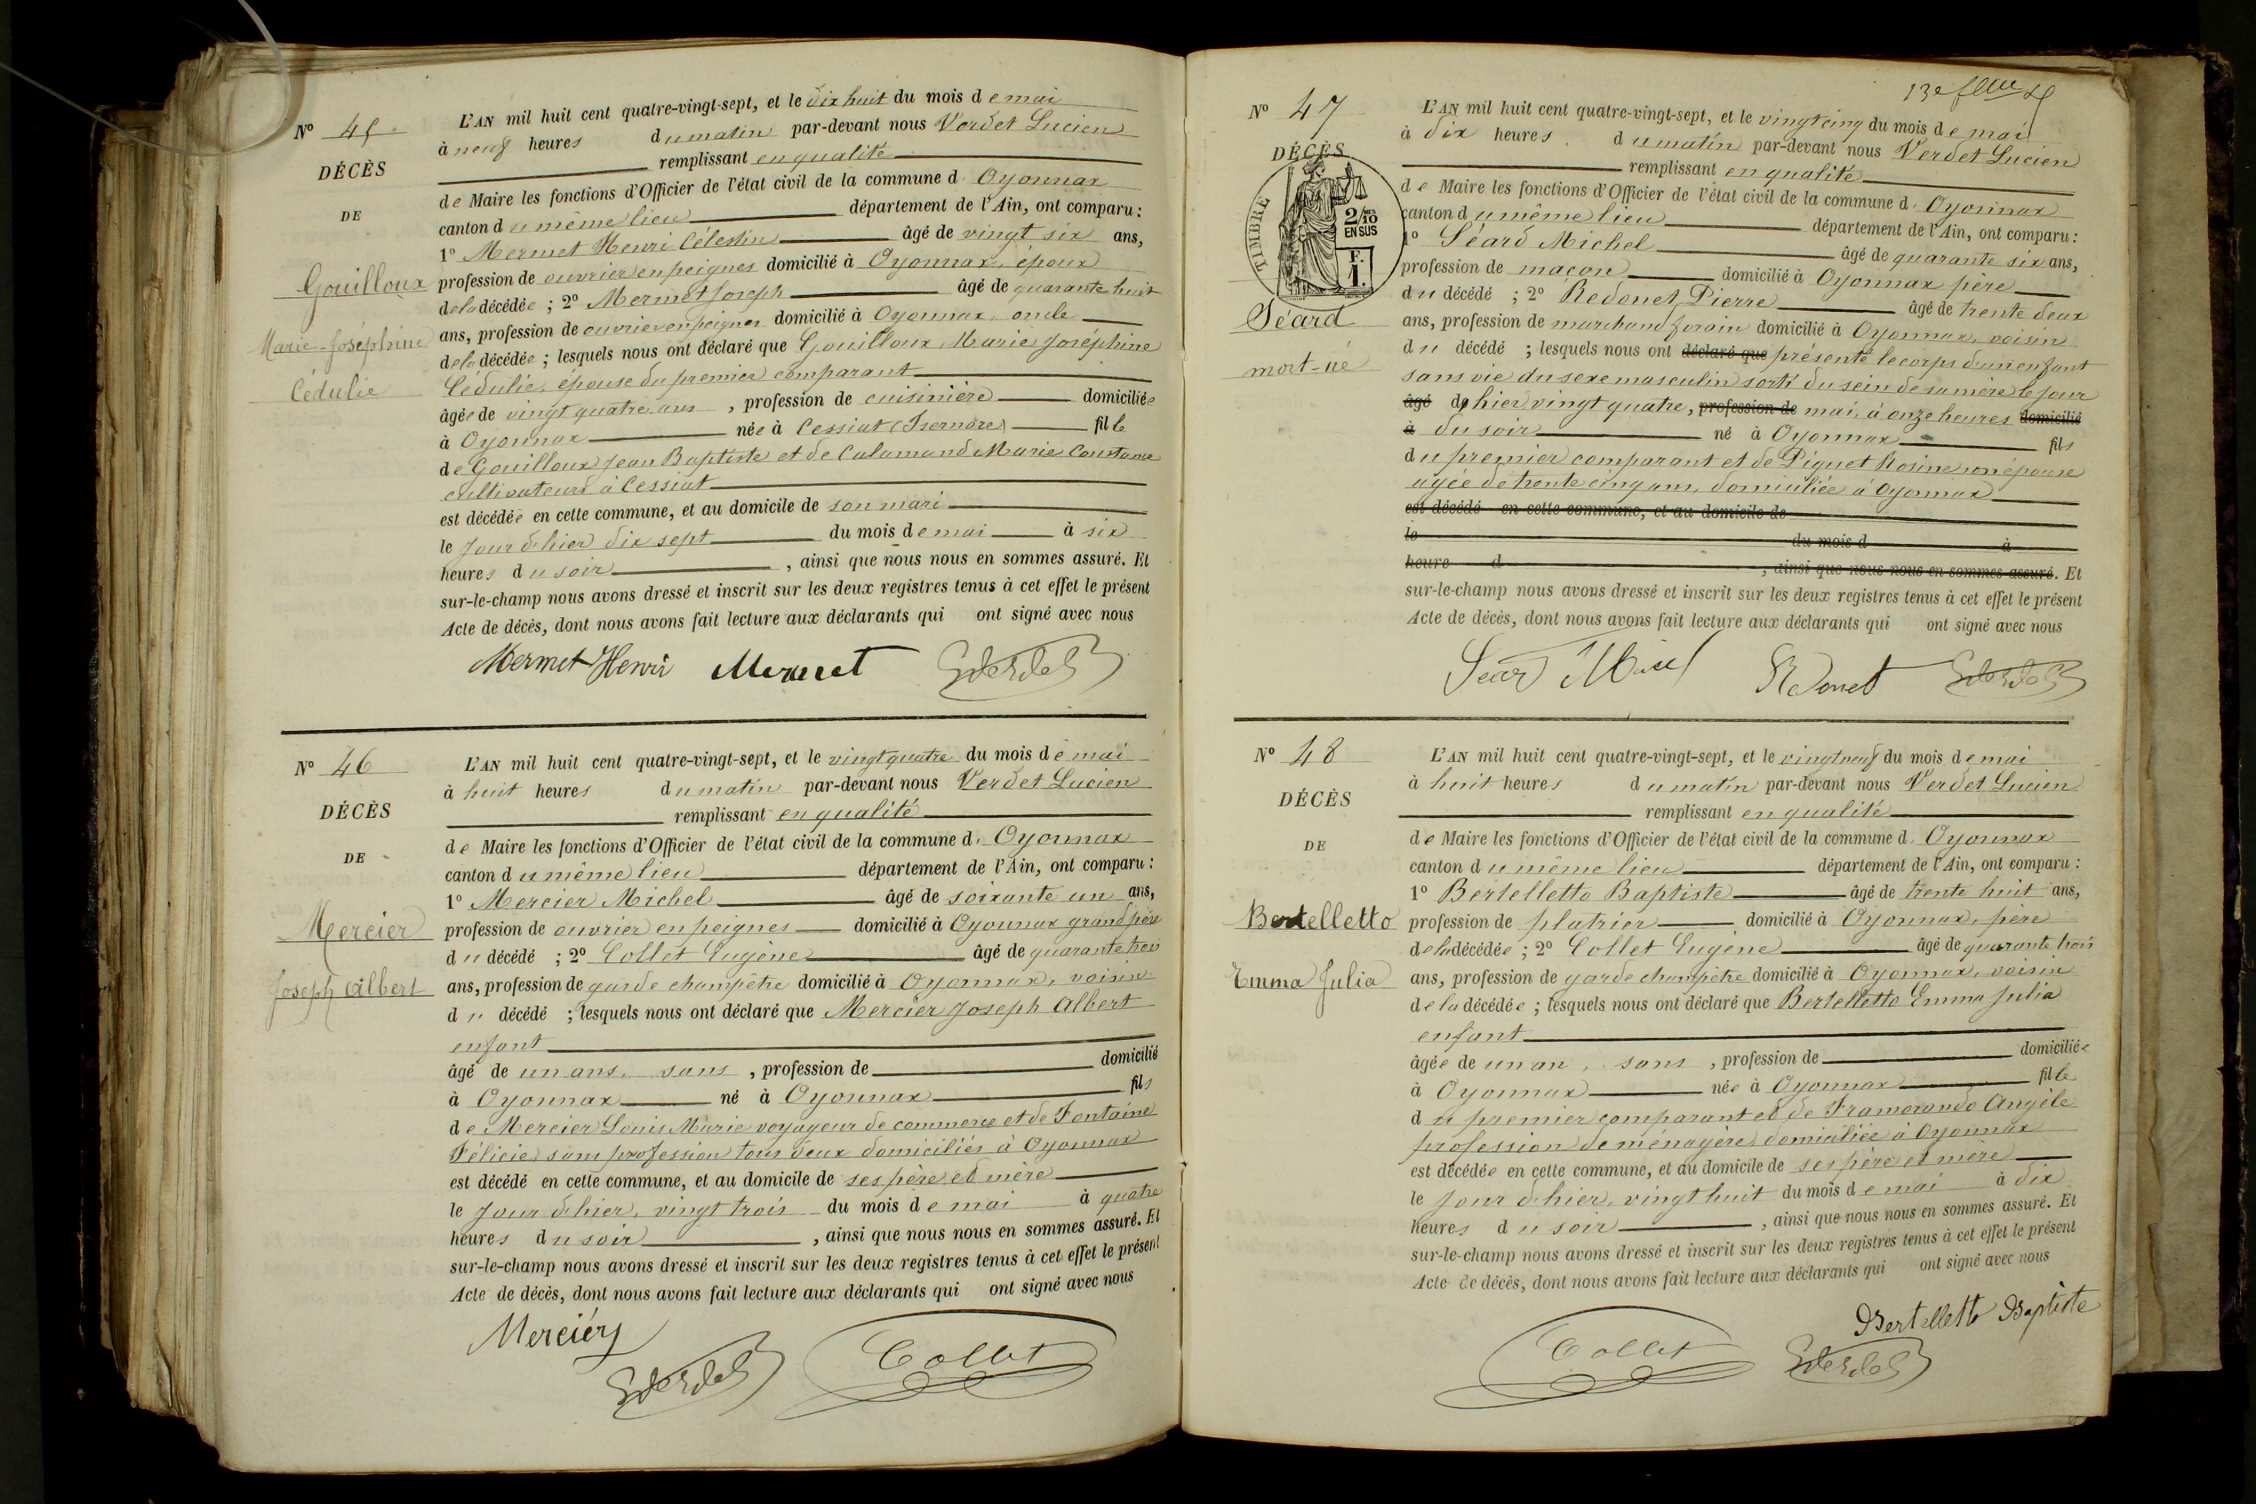 Nº 45
DÉCÈS
DE
Gouilloux
Marie-Joséphine
Cédulie
L'AN mil huit cent quatre-vingt-sept, et le dix huit du mois de mai
à neuf heures du matin par-devant nous Verdet Lucien
remplissant en qualité
de Maire les fonctions d'Officier de l'état civil de la commune d. Oyonnax
canton du même lieu département de l'Ain, ont comparu :
1º Mermet Henri Célestin âgé de vingt six ans,
profession de ouvrier en peignes domicilié à Oyonnax, époux
de la décédée ; 2º Mermet Joseph âgé de quarante huit
ans, profession de ouvrier en peignes domicilié à Oyonnax, oncle
de la décédée ; lesquels nous ont déclaré que Gouilloux Marie Joséphine
Cédulie, épouse du premier comparant
âgée de vingt quatre ans, profession de cuisinière domiciliée
à Oyonnax née à Cessiat (Isernore) fille
de Gouilloux Jean Baptiste et de Calamand Marie Constance
cultivateurs à Cessiat
est décédée en cette commune, et au domicile de son mari
le jour d'hier dix sept du mois de mai à six
heures du soir, ainsi que nous nous en sommes assuré. Et
sur-le-champ nous avons dressé et inscrit sur les deux registres tenus à cet effet le présent
Acte de décès, dont nous avons fait lecture aux déclarants qui ont signé avec nous
Mermet Henri Mermet
Nº 46
DÉCÈS
DE
Mercier
Joseph Albert
L'AN mil huit cent quatre-vingt-sept, et le vingt quatre du mois de mai
à huit heures du matin par-devant nous Verdet Lucien
remplissant en qualité
de Maire les fonctions d'Officier de l'état civil de la commune d. Oyonnax
canton du même lieu département de l'Ain, ont comparu :
1º Mercier Michel âgé de soixante un ans,
profession de ouvrier en peignes domicilié à Oyonnax grand père
du décédé ; 2º Collet Eugène âgé de quarante trois
ans, profession de garde champêtre domicilié à Oyonnax, voisin
du décédé ; lesquels nous ont déclaré que Mercier Joseph Albert
enfant
âgé de un ans, sans, profession de domicilié
à Oyonnax né à Oyonnax fils
de Mercier Louis Marie voyageur de commerce et de Fontaine
Félicie sans profession tous deux domiciliés à Oyonnax
est décédé en cette commune, et au domicile de ses père et mère
le jour d'hier, vingt trois du mois de mai à quatre
heures du soir, ainsi que nous nous en sommes assuré. Et
sur-le-champ nous avons dressé et inscrit sur les deux registres tenus à cet effet le présent
Acte de décès, dont nous avons fait lecture aux déclarants qui ont signé avec nous
Mercier
Collet
13e
Nº 47
DÉCÈS
TIMBRE
2/10
EN SUS
F.
1.
Séard
mort-né
L'AN mil huit cent quatre-vingt-sept, et le vingt cinq du mois de mai
à dix heures du matin par-devant nous Verdet Lucien
remplissant en qualité
de Maire les fonctions d'Officier de l'état civil de la commune d. Oyonnax
canton du même lieu département de l'Ain, ont comparu :
1º Séard Michel âgé de quarante six ans,
profession de maçon domicilié à Oyonnax père
du décédé ; 2º Redonet Pierre âgé de trente deux
ans, profession de marchand forain domicilié à Oyonnax, voisin
du décédé ; lesquels nous ont déclaré que présenté le corps d'un enfant
sans vie du sexe masculin sorti du sein de sa mère le jour
âgé d'hier vingt quatre, profession de mai, à onze heures domicilié
à du soir né à Oyonnax fils
du premier comparant et de Piquet Rosine son épouse
agée de trente cinq ans, domiciliée à Oyonnax
est décédé en cette commune, et au domicile de
le du mois d à
heure d, ainsi que nous nous en sommes assuré. Et
sur-le-champ nous avons dressé et inscrit sur les deux registres tenus à cet effet le présent
Acte de décès, dont nous avons fait lecture aux déclarants qui ont signé avec nous
Séard Michel Redonet
Nº 48
DÉCÈS
DE
Bertelletto
Emma Julia
L'AN mil huit cent quatre-vingt-sept, et le vingt neuf du mois de mai
à huit heures du matin par-devant nous Verdet Lucien
remplissant en qualité
de Maire les fonctions d'Officier de l'état civil de la commune d. Oyonnax
canton du même lieu département de l'Ain, ont comparu :
1º Bertelletto Baptiste âgé de trente huit ans,
profession de platrier domicilié à Oyonnax, père
de la décédée ; 2º Collet Eugène âgé de quarante trois
ans, profession de garde champêtre domicilié à Oyonnax, voisin
de la décédée ; lesquels nous ont déclaré que Bertelletto Emma Julia
enfant
âgée de un an, sans, profession de domiciliée
à Oyonnax née à Oyonnax fille
du premier comparant et de Framorando Angèle
profession de ménagère domiciliée à Oyonnax
est décédée en cette commune, et au domicile de ses père et mère
le jour d'hier, vingt huit du mois de mai à dix
heures du soir, ainsi que nous nous en sommes assuré. Et
sur-le-champ nous avons dressé et inscrit sur les deux registres tenus à cet effet le présent
Acte de décès, dont nous avons fait lecture aux déclarants qui ont signé avec nous
Bertelletto Baptiste
Collet